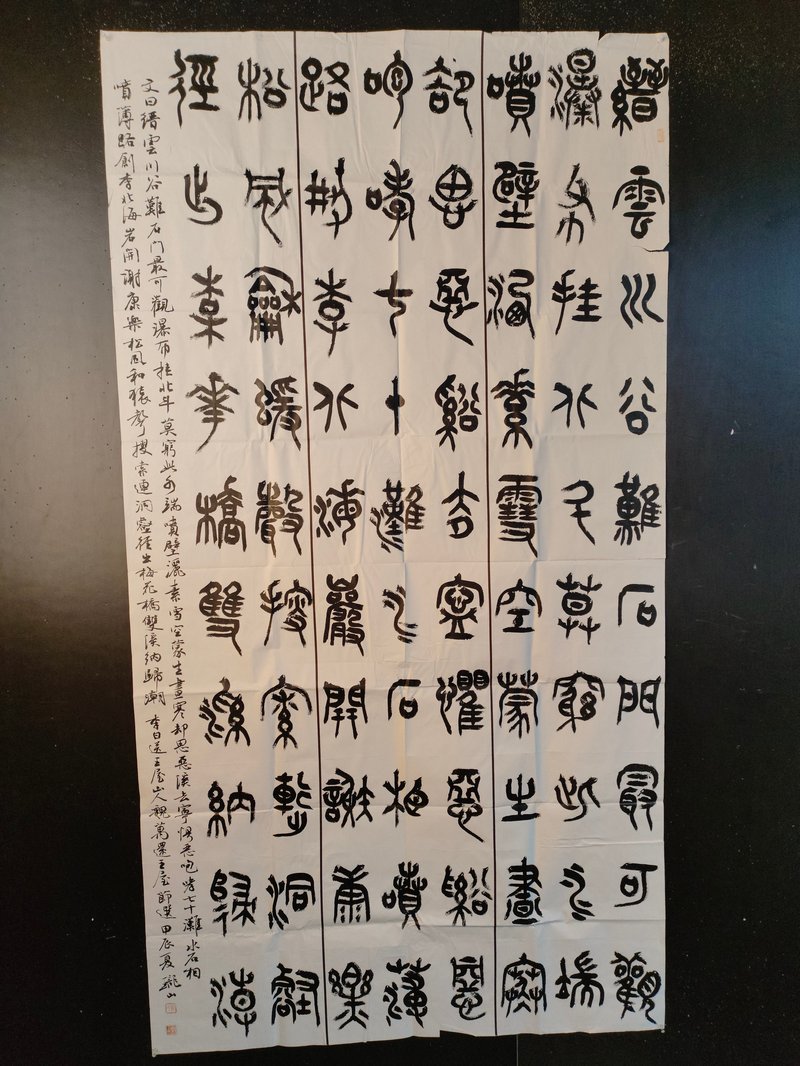 縉雲川谷難石門最可觀
瀑布挂北斗莫窮此水端
噴壁灑素雪空蒙生晝寒
却思惡谿去寧懼惡谿惡
咆哮七十灘水石相噴薄
路創李北海巖開謝康樂
松風龢猨聲搜索連洞壑
徑出梅花橋雙溪納歸潮
文曰縉雲川谷難石门最可觀瀑布挂北斗莫窮此水端噴壁灑素雪空蒙生晝寒却思惡溪去寧惧惡咆哮七十灘水石相
噴薄路創李北海岩開謝康樂松風和猿聲搜索連洞壑徑出梅花橋雙溪納歸潮 李白送王屋山人魏萬還王屋節選 甲辰夏 山